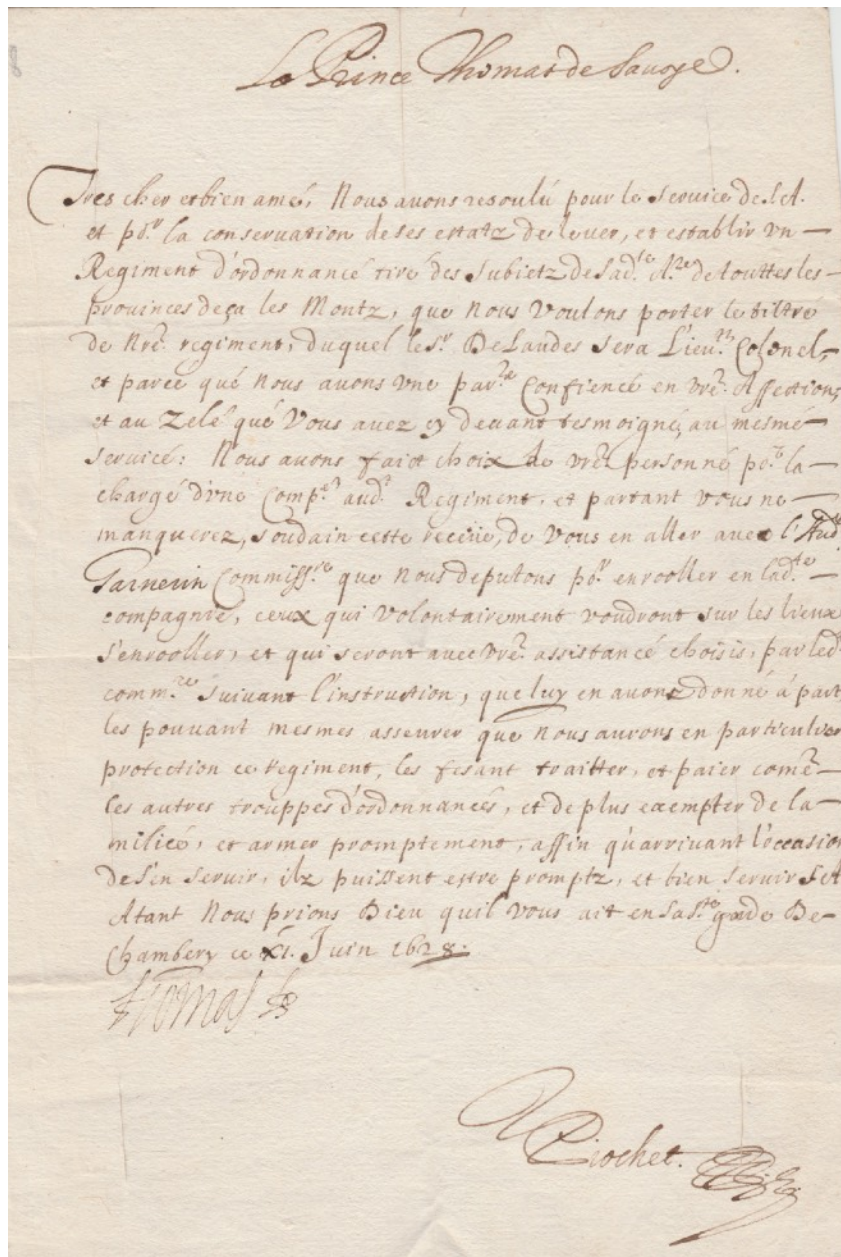 Le Prince Thomas de Sauoye.
Tres cher et bien amé, Nous auons resoulu pour le seruice de S.A.
et po.r la conseruation de ses estatz de leuer, et establir vn
Regiment d'ordonnance tiré des subietz de sad.te A.ze de touttes les
prouinces deça les Montz, que Nous Voulons porter le tiltré
de nre. regiment, duquel le s.r De Landes sera Lieu.nt Colonel,
et parce qué nous auons vne par.re Confiencé en vre. Affection,
et au Zelé qué Vous auez cy deuant tesmoigné, au mesmé
seruicé: Nous auons faict choix de vre. personné po.r la
chargé d'vne Comp.e aud.t Regiment, et partant vous ne
manquerez, soudain cette receüe, de vous en aller auec l'Aud.r
Garnerin Commiss.re que Nous deputons po.r enrooller en lad.te
compagnié, ceux qui volontairement voudront sur les lieux
s'enrooller, et qui seront auec vre. assistancé choisis, par led.
comm.re suiuant l'instruction, que luy en auons donné à part
les pouuant mesmes asseurer que Nous aurons en particulier
protection ce regiment, les fesant traitter, et paier comē
les autres trouppes d'ordonnancés, et de plus exempter de la
milicé, et armer promptement, affin qu'arriuant l'occasion
de s'en seruir, ilz puissent estre promptz, et bien seruir S.A
Atant Nous prions Dieu quil Vous ait en sa s.te garde De
Chambery ce XI. Juin 1628.
Thomas
Piochet.